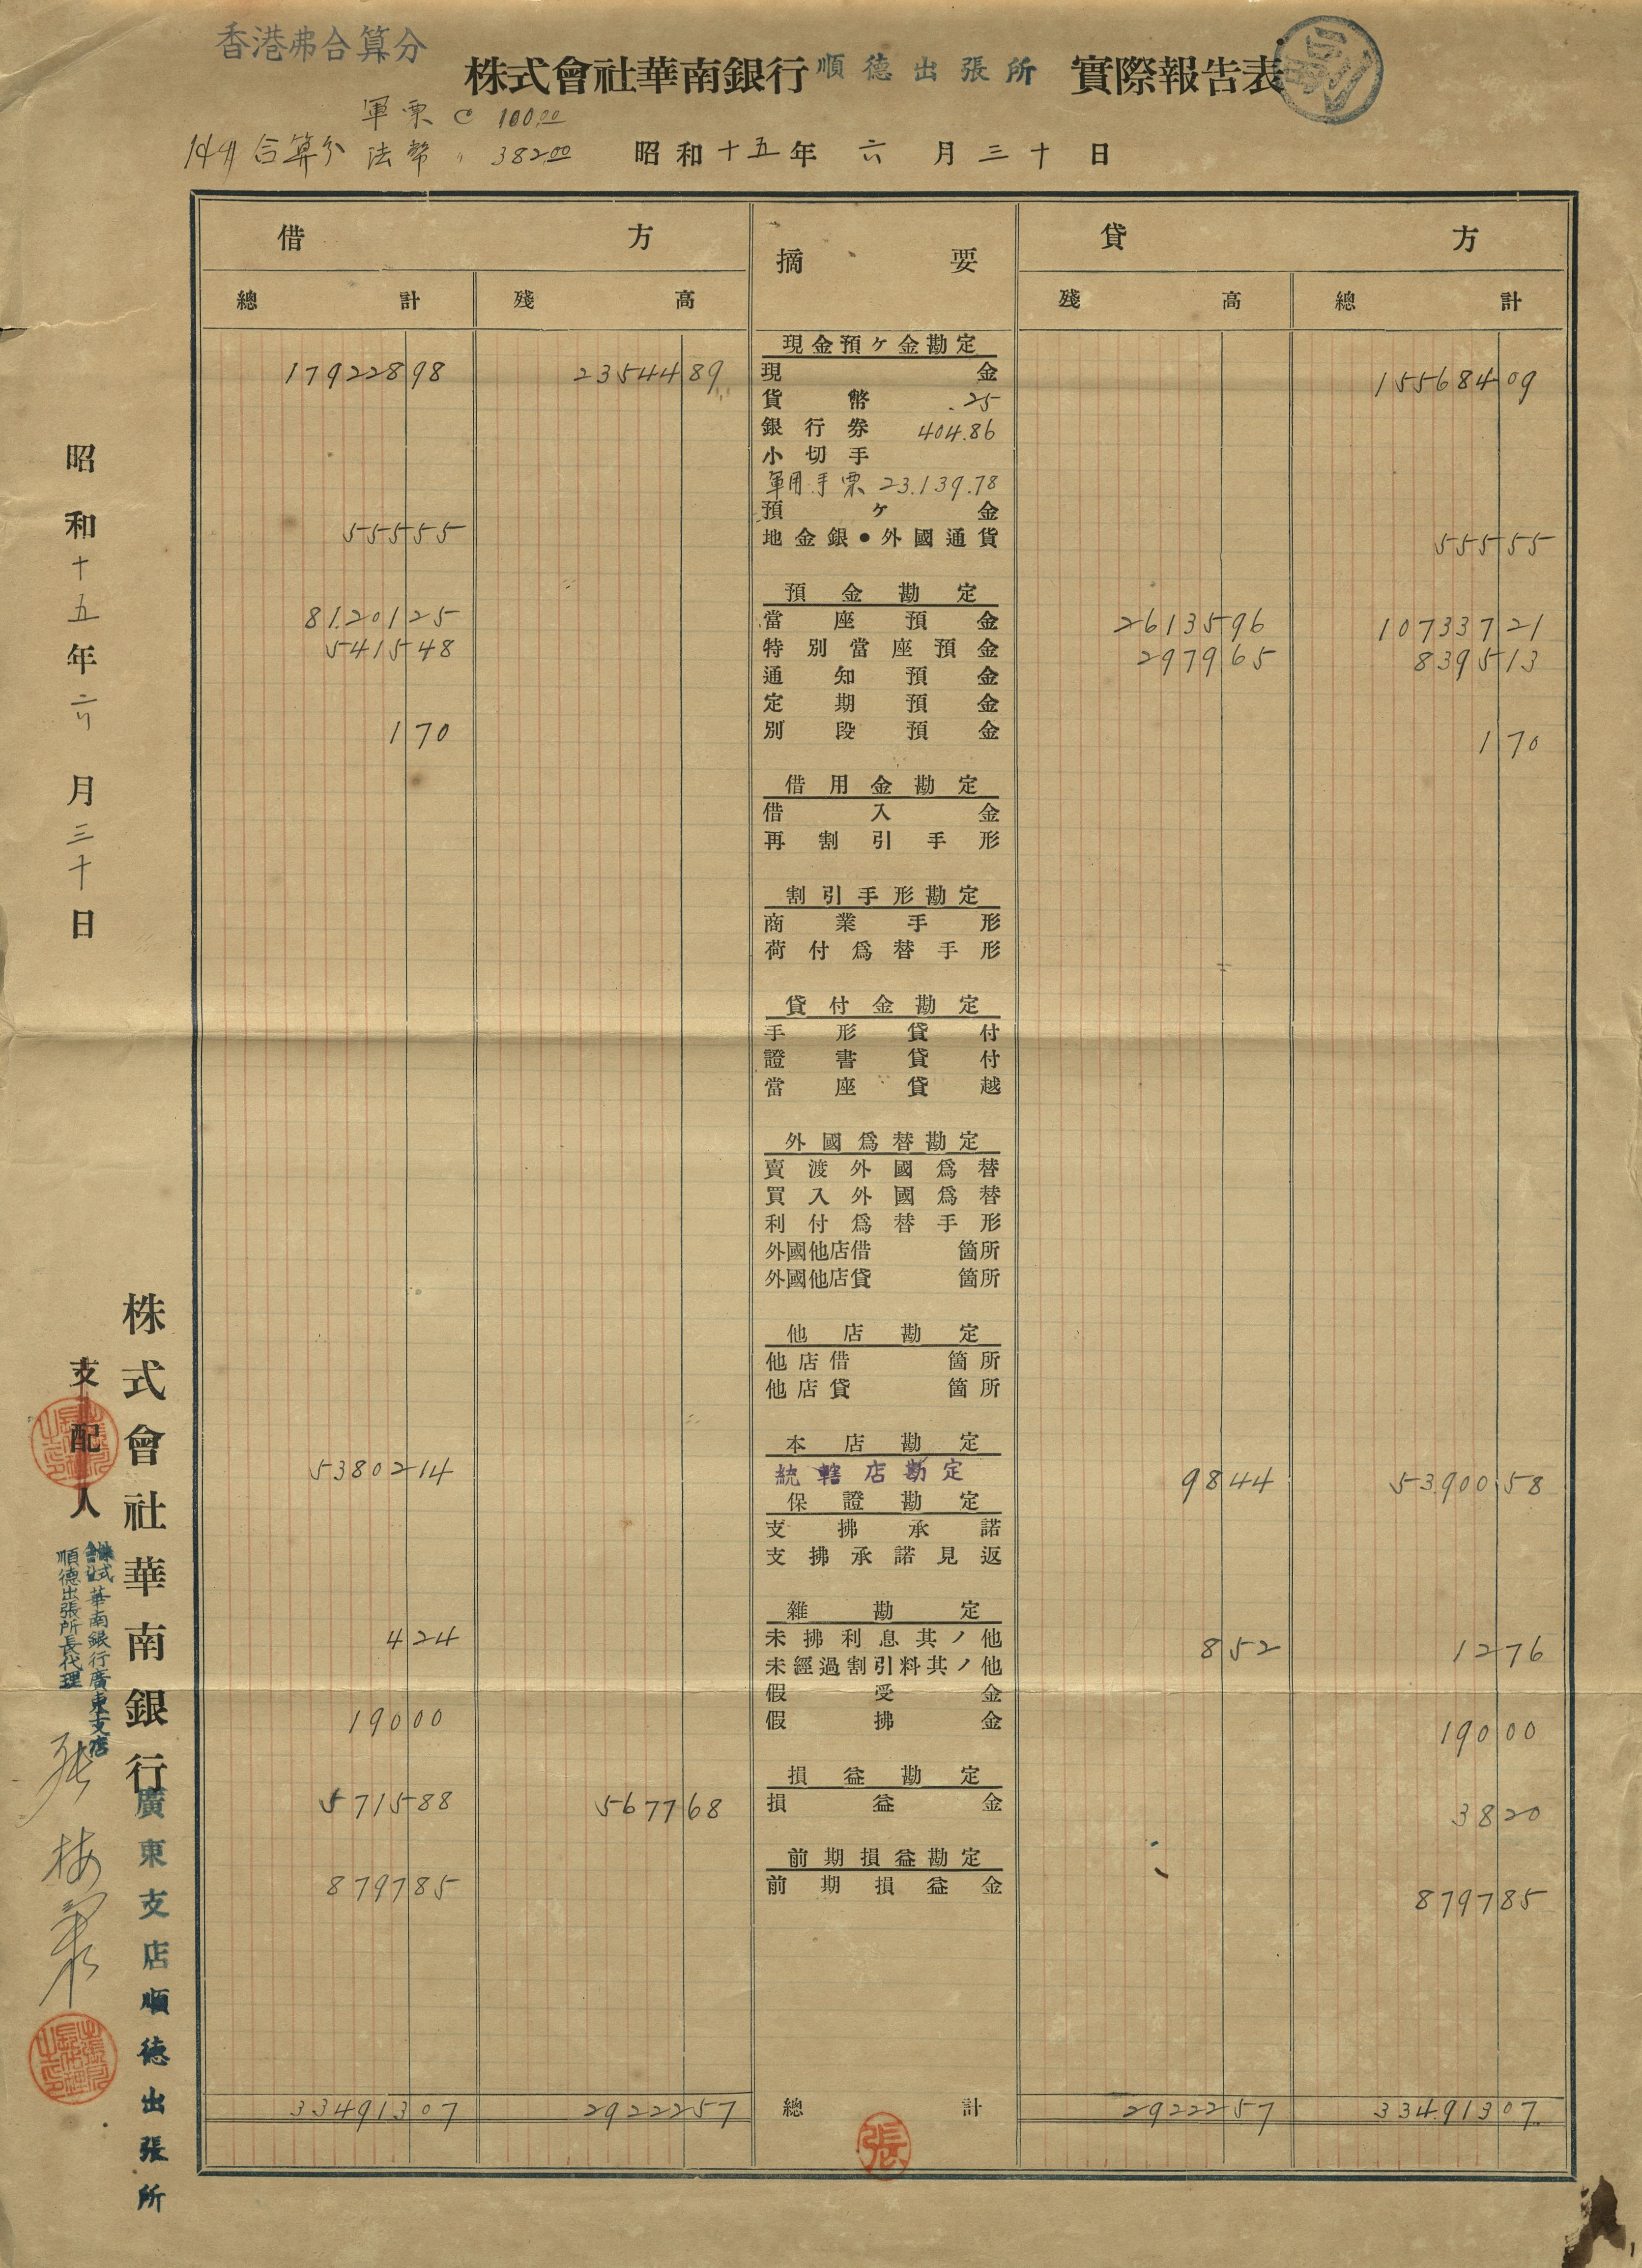 香港弗合算分
株式會社華南銀行 順德出張所 實際報告表
副
軍票 @ 100.00
合算分 法幣 〃 382.00
昭和十五年 六 月 三十 日
借方 摘要 貸方
總計 殘高 殘高 總計
現金預ケ金勘定
179228 98 23544 89 現金 155684 09
貨幣 .25
銀行券 404.86
小切手
軍用手票 23.139.78
預ケ金
555 55 地金銀・外國通貨 555 55
預金勘定
81201 25 當座預金 26135 96 107337 21
5415 48 特別當座預金 2979 65 8395 13
通知預金
定期預金
1 70 別段預金 1 70
借用金勘定
借入金
再割引手形
割引手形勘定
商業手形
荷付爲替手形
貸付金勘定
手形貸付
證書貸付
當座貸越
外國爲替勘定
賣渡外國爲替
買入外國爲替
利付爲替手形
外國他店借 箇所
外國他店貸 箇所
他店勘定
他店借 箇所
他店貸 箇所
本店勘定
53802 14 統轄店勘定 98 44 53900 58
保證勘定
支拂承諾
支拂承諾見返
雜勘定
4 24 未拂利息其ノ他 8 52 12 76
未經過割引料其ノ他
假受金
190 00 假拂金 190 00
損益勘定
5715 88 5677 68 損益金 38 20
前期損益勘定
8797 85 前期損益金 8797 85
334913 07 29222 57 總計 29222 57 334913 07
張
昭和十五年六月三十日
株式會社華南銀行廣東支店順德出張所
支配人
株式會社華南銀行廣東支店
順德出張所長代理
張